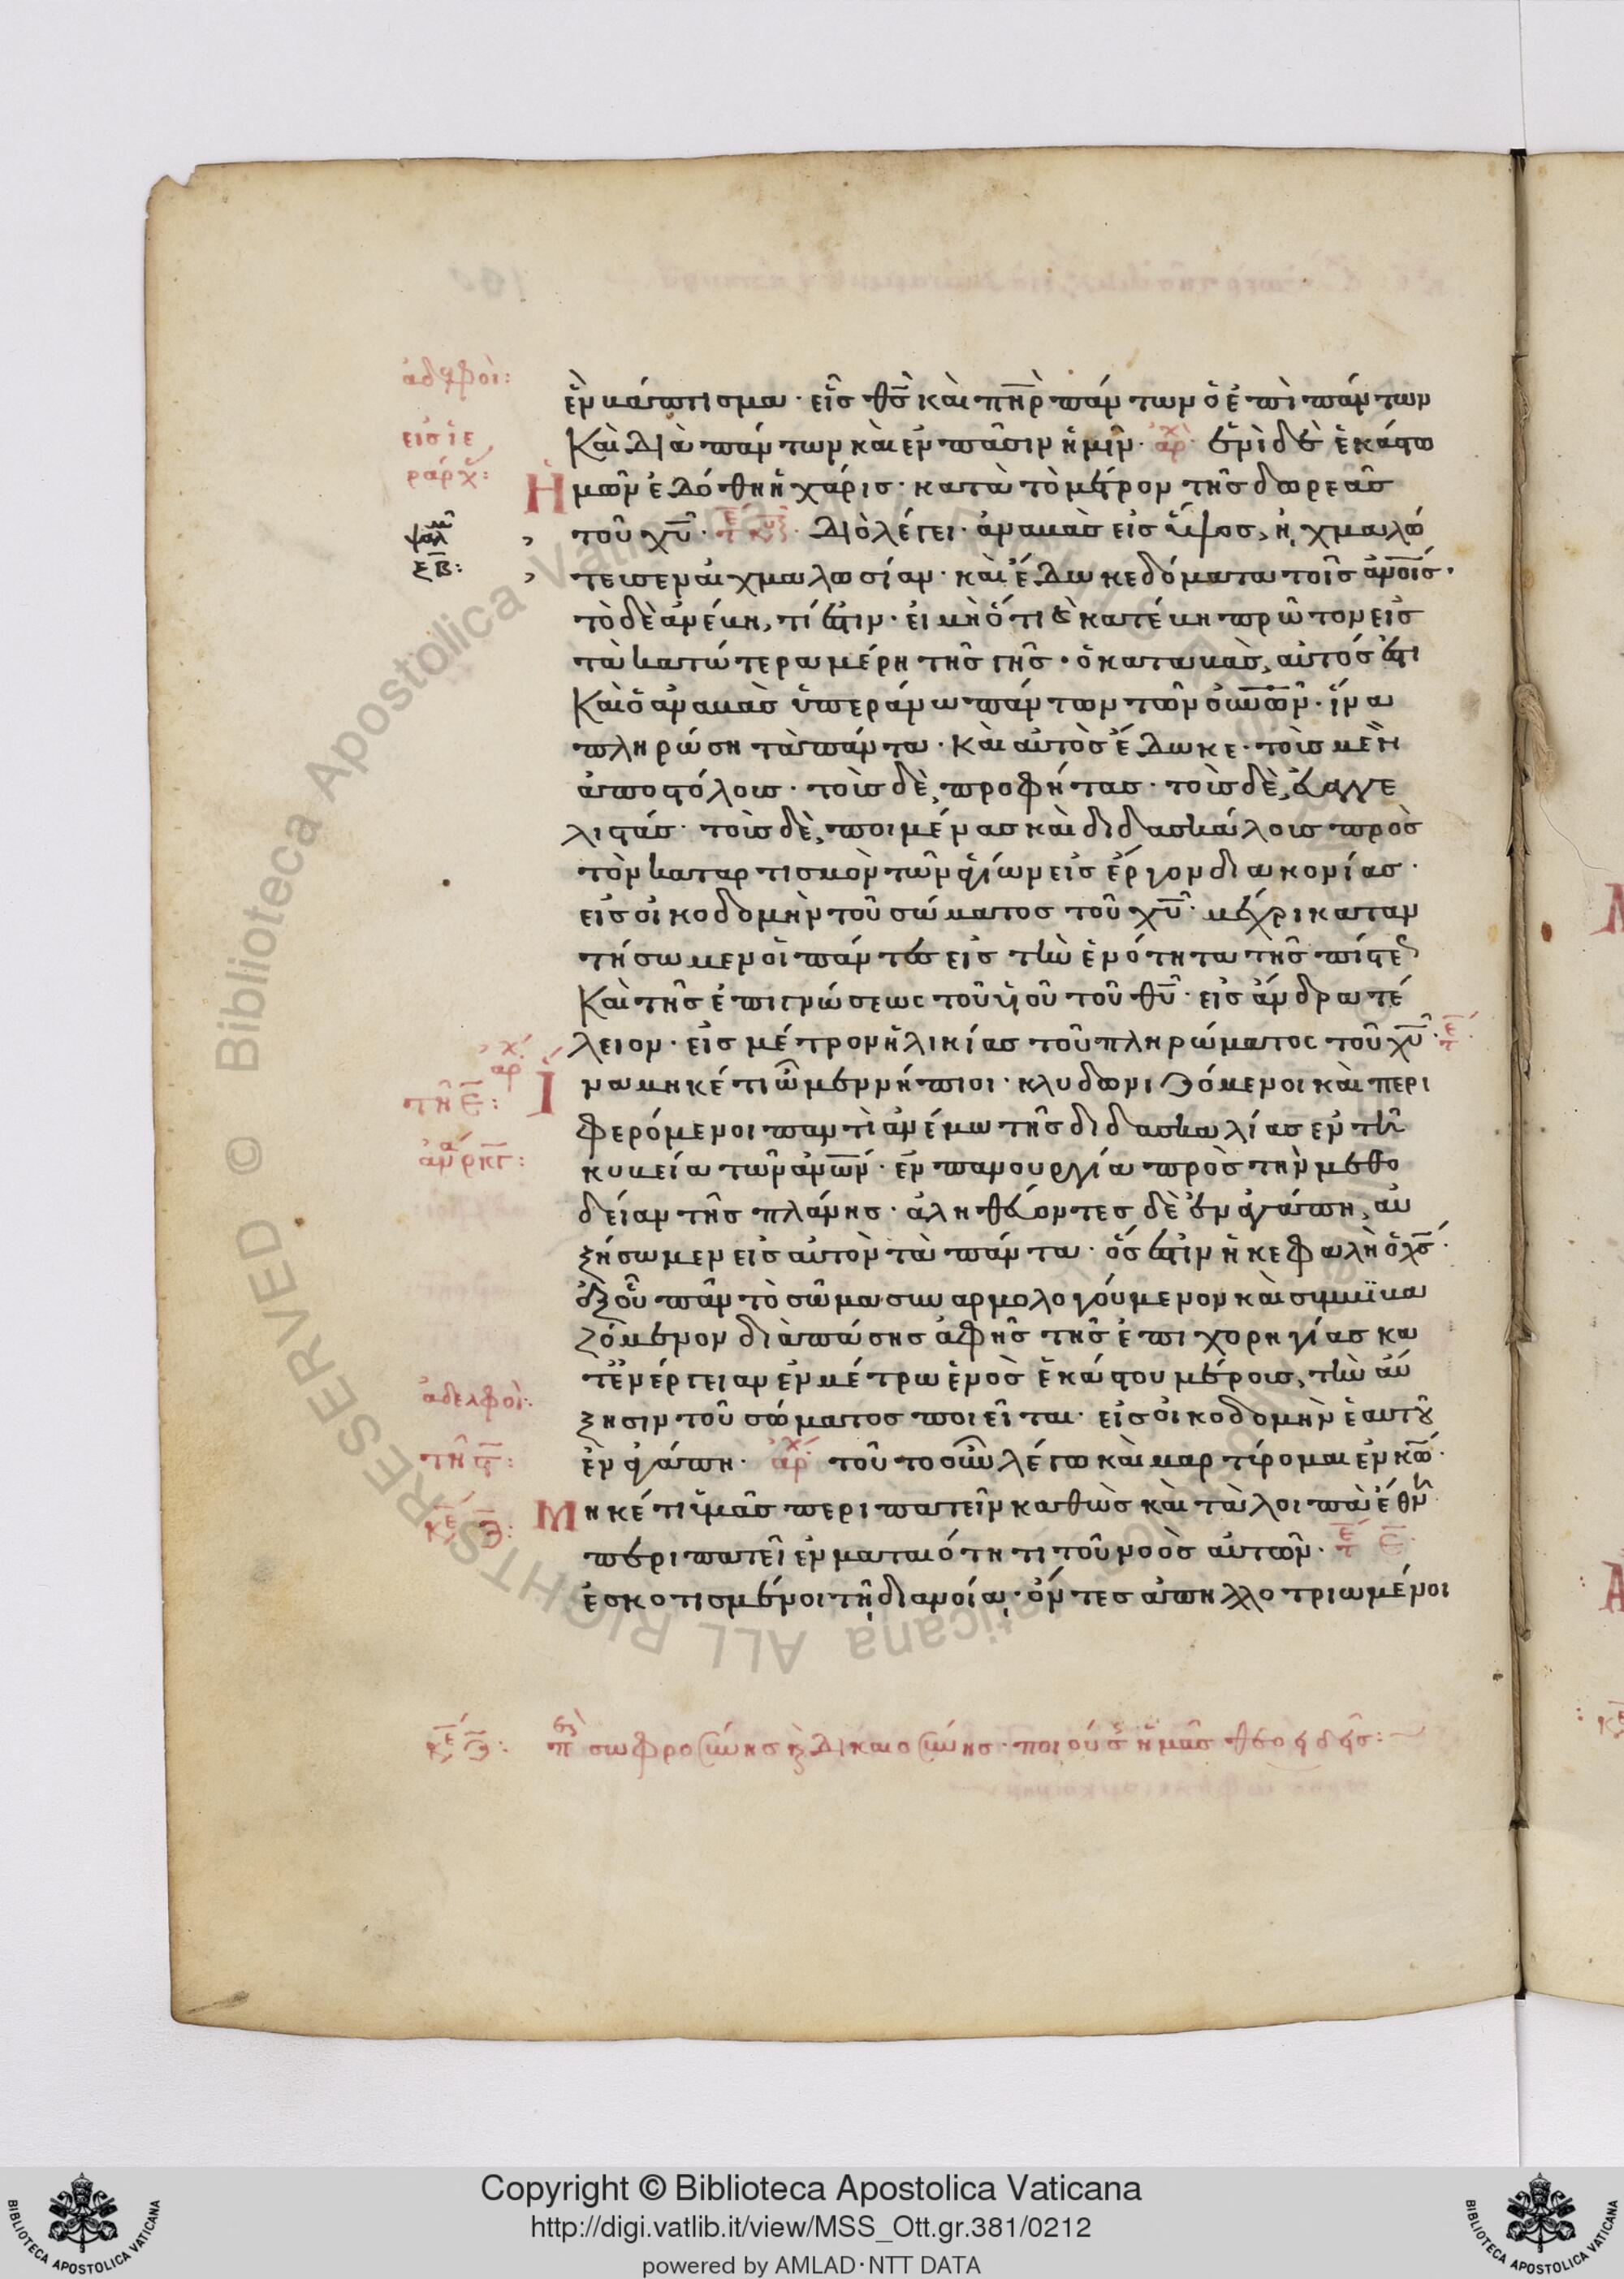 ἀδελφοί:
ἓν βάπτισμα· εἷς θς̅ καὶ πηρ̅ πάντων ὁ ἐπὶ πάντων
εἰς ἱε
Καὶ διὰ πάντων καὶ ἐν πᾶσιν ἡμῖν· ἀρχ ἑνὶ δὲ ἑκάστω
ράρχ:
Ἡμῶν ἐδόθη ἡ χάρις· κατὰ τὸ μέτρον τῆς δωρεᾶς
ψαλμ
τοῦ χυ̅· τε κυ διὸ λέγει· ἀναβὰς εἰς ὕψος, ἠχμαλώ
ξβ̅:
τευσεν αἰχμαλωσίαν· καὶ ἔδωκε δόματα τοῖς ἀνοις̅·
τὸ δὲ ἀνέβη, τί ἐστιν· εἰ μὴ ὅτι καὶ κατέβη πρῶτον εἰς
τὰ κατώτερα μέρη τῆς γῆς· ὁ καταβὰς, αὐτός ἐστι
Καὶ ὁ ἀναβὰς ὑπεράνω πάντων τῶν οὐνων̅· ἵνα
πληρώση τὰ πάντα· καὶ αὐτὸς ἔδωκε· τοὺς μὲν
ἀποστόλους· τοὺς δὲ, προφήτας· τοὺς δὲ, εὐαγγε
λιστάς· τοὺς δὲ, ποιμένας καὶ διδασκάλους πρὸς
τὸν καταρτισμὸν τῶν ἁγίων εἰς ἔργον διακονίας·
εἰς οἰκοδομὴν τοῦ σώματος τοῦ χυ̅· μέχρι καταν
τήσωμεν οἱ πάντες εἰς τὴν ἑνότητα τῆς πίστεως
Καὶ τῆς ἐπιγνώσεως τοῦ υἱοῦ τοῦ θυ̅· εἰς ἄνδρα τέ
λειον· εἰς μέτρον ἡλικίας τοῦ πληρώματος τοῦ χυ̅· τε
ἀρχ
τῆ ε̅:
Ἵνα μηκέτι ὦμεν νήπιοι· κλυδωνιζόμενοι καὶ περι
φερόμενοι παντὶ ἀνέμω τῆς διδασκαλίας ἐν τῆ
κυβεία τῶν ἀνων̅· ἐν πανουργία πρὸς τὴν μεθο
δείαν τῆς πλάνης· ἀληθεύοντες δὲ ἐν ἀγάπη, αὐ
ξήσωμεν εἰς αὐτὸν τὰ πάντα· ὅς ἐστιν ἡ κεφαλὴ ὁ χς̅·
ἐξ οὗ πᾶν τὸ σῶμα συναρμολογούμενον καὶ συμβιβα
ζόμενον διὰ πάσης ἁφῆς τῆς ἐπιχορηγίας κα
τ' ἐνέργειαν ἐν μέτρω ἑνὸς ἑκάστου μέρους, τὴν αὔ
ἀδελφοί·
ξησιν τοῦ σώματος ποιεῖται· εἰς οἰκοδομὴν ἑαυτοῦ
ἐν ἀγάπη· ἀρχ τοῦτο οὖν λέγω καὶ μαρτύρομαι ἐν κω̅·
κε θ̅:
Μηκέτι ὑμᾶς περιπατεῖν καθὼς καὶ τὰ λοιπὰ ἔθνη
περιπατεῖ ἐν ματαιότητι τοῦ νοὸς αὐτῶν· τε ε̅
ἐσκοτισμένοι τῆ διανοία· ὄντες ἀπηλλοτριωμένοι
κε θ̅: περὶ σωφροσύνης καὶ δικαιοσύνης· ποιούσης ἡμᾶς θεοειδεῖς:
Copyright © Biblioteca Apostolica Vaticana
http://digi.vatlib.it/view/MSS_Ott.gr.381/0212
powered by AMLAD·NTT DATA
BIBLIOTECA APOSTOLICA VATICANA
BIBLIOTECA APOSTOLICA VATICANA